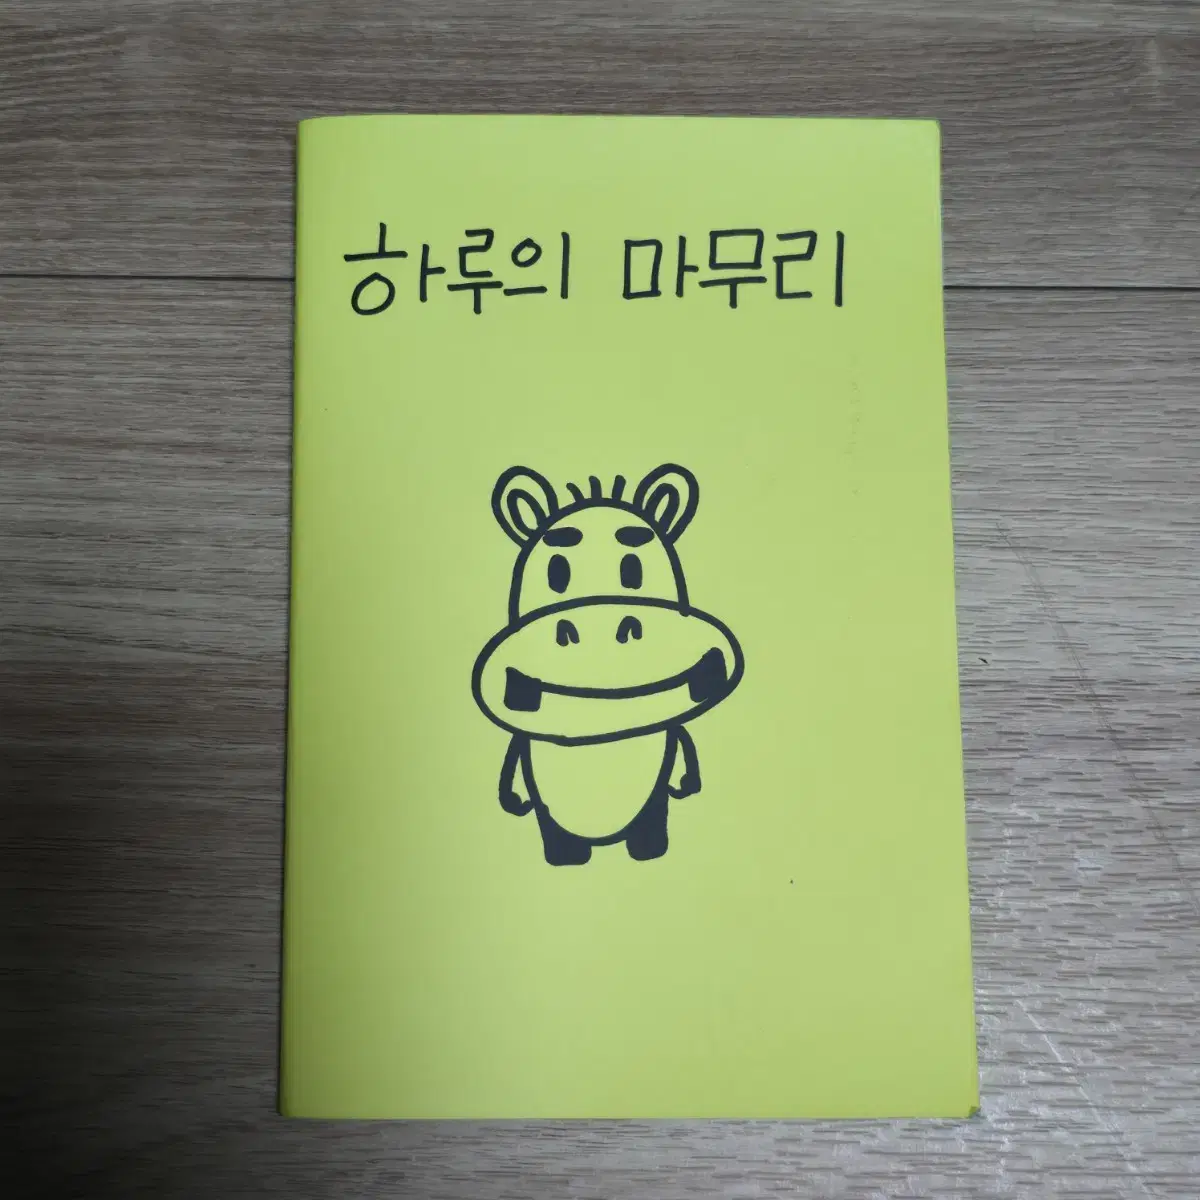 하루의 마무리